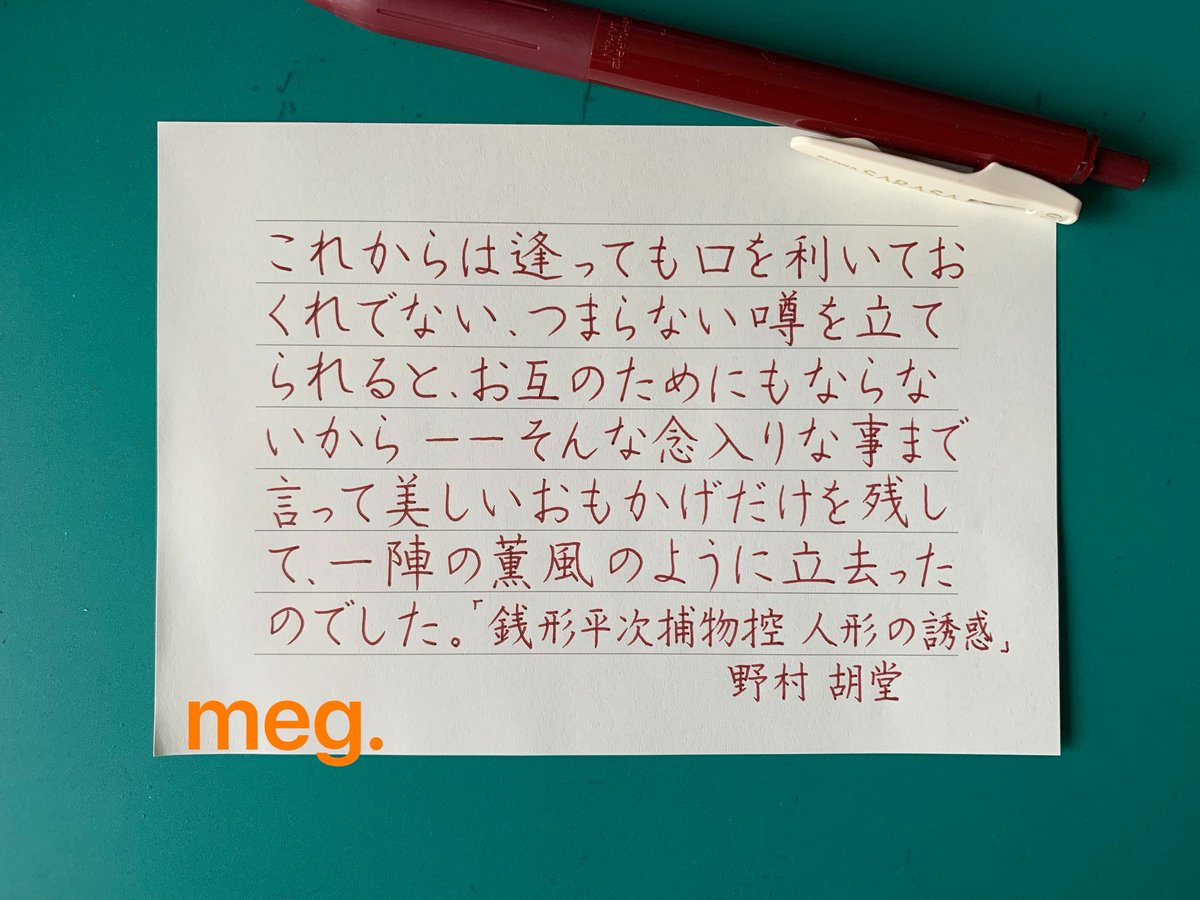 ZEBRA SARASA
これからは逢っても口を利いてお
くれでない、つまらない噂を立て
られると、お互のためにもならな
いから ーーそんな念入りな事まで
言って美しいおもかげだけを残し
て、一陣の薫風のように立去った
のでした。「銭形平次捕物控 人形の誘惑」
野村 胡堂
meg.